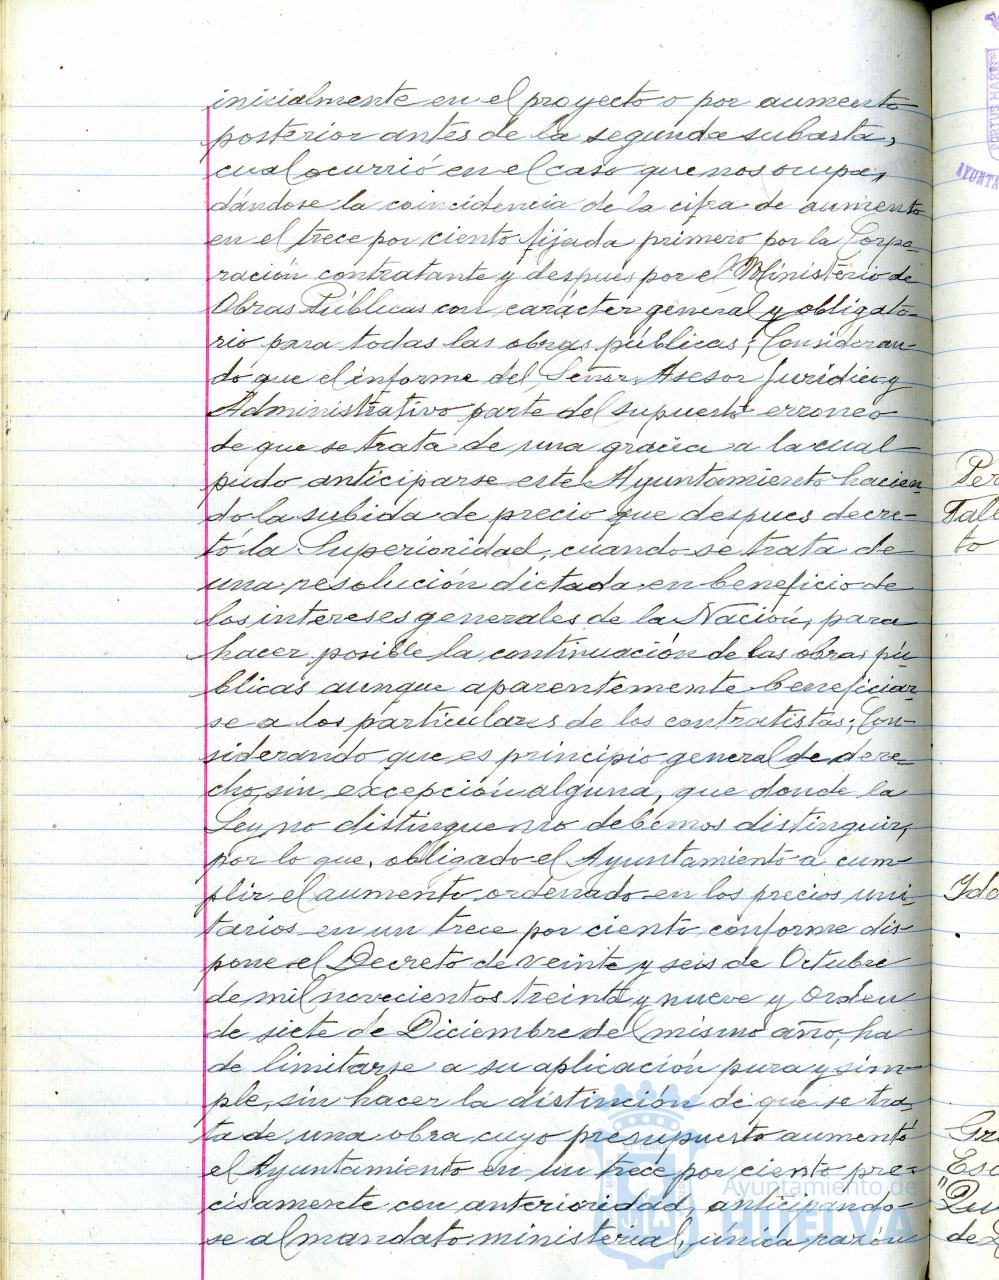 inicialmente en el proyecto o por aumento
posterior antes de la segunda subasta,
cual ocurrió en el caso que nos ocupa,
dándose la coincidencia de la cifra de aumento
en el trece por ciento fijada primero por la Corpo-
ración contratante y despues por el Ministerio de
Obras Públicas con carácter general y obligato-
rio para todas las obras públicas; Consideran-
do que el informe del Señor Asesor Jurídico y
Administrativo parte del supuesto erroneo
de que se trata de una gracia a la cual
pudo anticiparse este Ayuntamiento hacien-
do la subida de precio que despues decre-
tó la Superioridad, cuando se trata de
una resolución dictada en beneficio de
los intereses generales de la Nación, para
hacer posible la continuación de las obras pú-
blicas aunque aparentemente beneficiar-
se a los particulares de los contratistas; Con-
siderando que es principio general de dere-
cho, sin excepción alguna, que donde la
Ley no distingue no debemos distinguir,
por lo que, obligado el Ayuntamiento a cum-
plir el aumento ordenado en los precios uni-
tarios en un trece por ciento conforme dis-
pone el Decreto de veinte y seis de Octubre
de mil novecientos treinta y nueve y Orden
de siete de Diciembre del mismo año, ha
de limitarse a su aplicación pura y sim-
ple, sin hacer la distinción de que se tra-
ta de una obra cuyo presupuesto aumentó
el Ayuntamiento en un trece por ciento pre-
cisamente con anterioridad, anticipando-
se al mandato ministerial, única razón
Ayuntamiento de
HUELVA
Per
Tall
to
Ido
Gra
Esc
"Qui
de